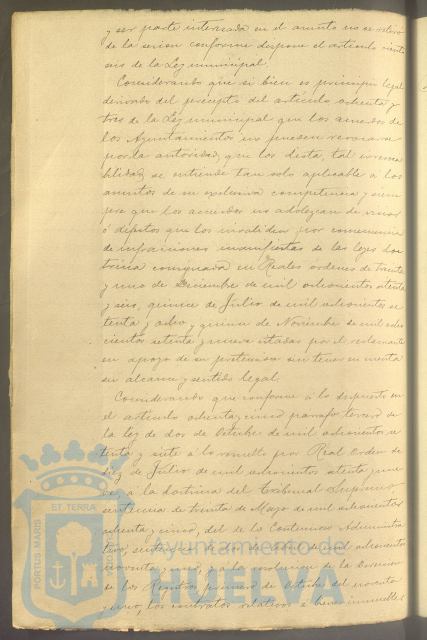 y ser parte interesada en el asunto no se retiró
de la sesion conforme dispone el articulo ciento
seis de la Ley municipal.
Considerando que si bien es principio legal
derivado del precepto del articulo ochenta y
tres de la Ley municipal que los acuerdos de
los Ayuntamientos no pueden revocarse
por la autoridad que los dicta, tal irrevoca
bilidad se entiende tan solo aplicable á los
asuntos de su exclusiva competencia y siem
pre que los acuerdos no adolezcan de vicios
ó defectos que los invaliden por consecuencia
de infracciones manifiestas de las leyes doc
trina consignada en Reales ordenes de treinta
y uno de Diciembre de mil ochocientos setenta
y seis, quince de Julio de mil ochocientos se
tenta y ocho y quince de Noviembre de mil ocho
cientos setenta y nueve citadas por el reclamante
en apoyo de su pretension sin tener en cuenta
su alcance y sentido legal.
Considerando que conforme á lo dispuesto en
el articulo ochenta y cinco parrafo tercero de
la ley de dos de Octubre de mil ochocientos se
tenta y siete á lo resuelto por Real Orden de
de Julio de mil ochocientos ochenta y nue
ve, a la doctrina del Tribunal Supremo
sentencia de treinta de Mayo de mil ochocientos
ochenta y cinco, del de lo Contencioso Administra
tivo, sentencia de mil ochocientos
noventa y uno, y á la resolucion de la Direccion
de los Registros primero de Octubre del noventa
y uno, los contratos relativos a bienes inmuebles
PORTUS MARIS
ET TERRA
CUSTODIA
Ayuntamiento de
HUELVA